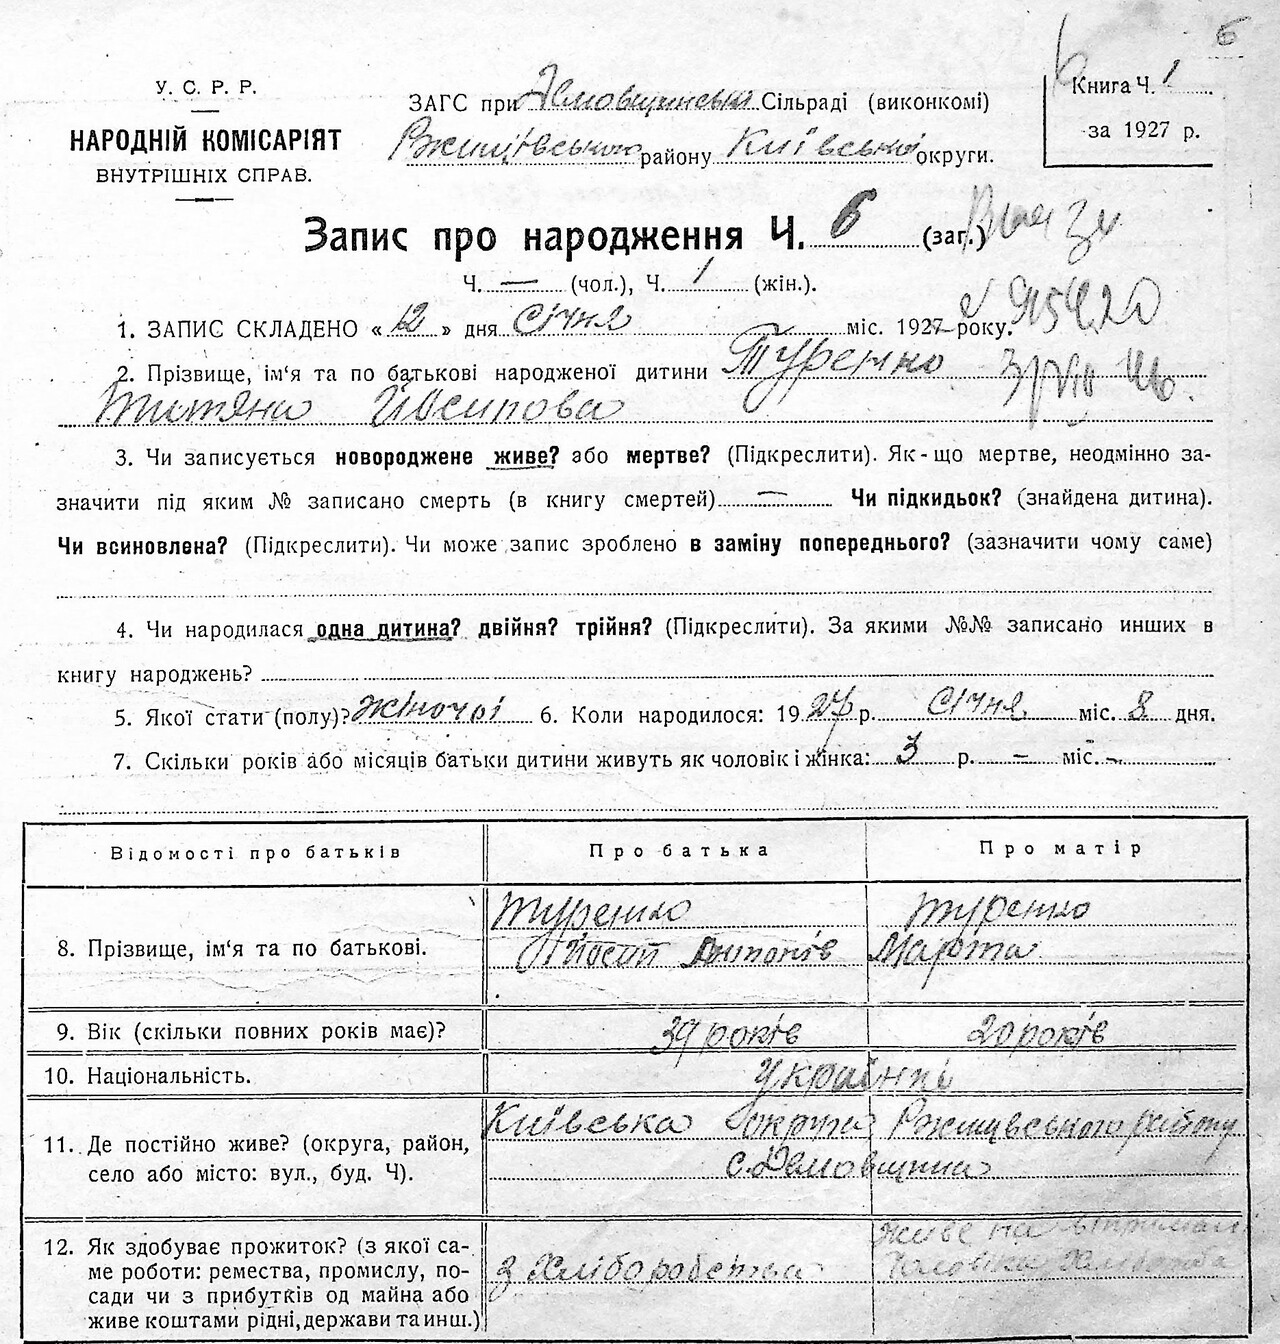 6
У. С. Р. Р.
НАРОДНІЙ КОМІСАРІЯТ
ВНУТРІШНІХ СПРАВ.
ЗАГС при Демовщинській Сільраді (виконкомі)
Ржищівського району Київської округи.
Книга Ч. 1
за 1927 р.
Запис про народження Ч. 6 (заг.)
Ч. — (чол.), Ч. 1 (жін.).
1. ЗАПИС СКЛАДЕНО « 12 » дня січня міс. 1927 року.
2. Прізвище, ім'я та по батькові народженої дитини Туренко
Титяна Йосипова
3. Чи записується новороджене живе? або мертве? (Підкреслити). Як-що мертве, неодмінно за-
значити під яким № записано смерть (в книгу смертей) — Чи підкидьок? (знайдена дитина).
Чи всиновлена? (Підкреслити). Чи може запис зроблено в заміну попереднього? (зазначити чому саме)
4. Чи народилася одна дитина? двійня? трійня? (Підкреслити). За якими №№ записано инших в
книгу народжень?
5. Якої стати (полу)? жіночої 6. Коли народилося: 1927 р. січня міс. 8 дня.
7. Скільки років або місяців батьки дитини живуть як чоловік і жінка: 3 р. — міс. —
Відомості про батьків Про батька Про матір
8. Прізвище, ім'я та по батькові. Туренко Йосип Антонів Туренко Марта
9. Вік (скільки повних років має)? 39 років 20 років
10. Національність. Українці
11. Де постійно живе? (округа, район, Київська округа Ржищівського району
село або місто: вул., буд. Ч). с. Демовщина
12. Як здобуває прожиток? (з якої са-
ме роботи: ремества, промислу, по-
сади чи з прибутків од майна або
живе коштами рідні, держави та инш.) з Хліборобства Живе на втриман
Чоловіка